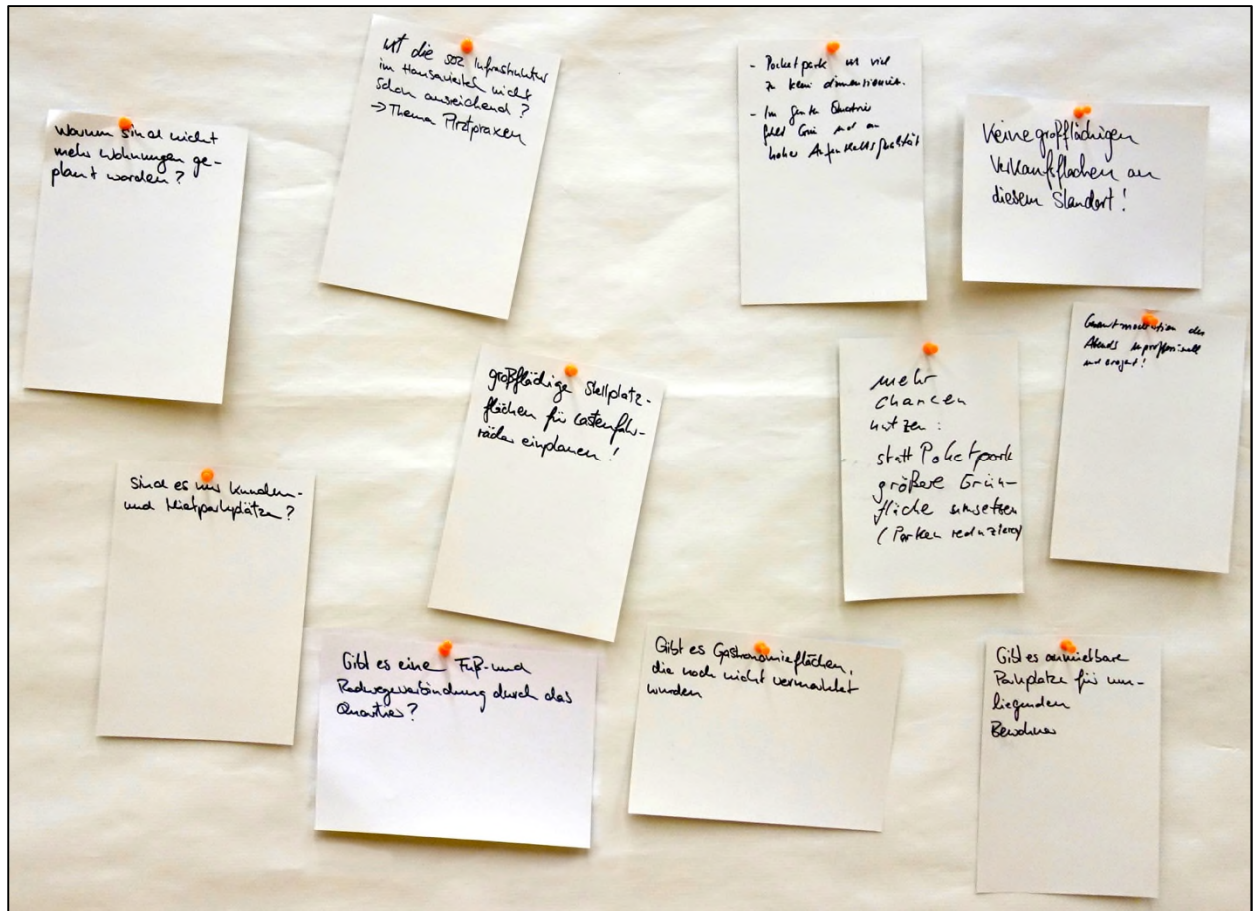 Warum sind nicht
mehr Wohnungen ge-
plant worden?
ist die soz Infrastruktur
im Hansaviertel nicht
schon ausreichend?
→ Thema Arztpraxen
- Pocketpark ist viel
zu klein dimensioniert.
- Im Quartier
fehlt Grün und an
hoher Aufenthaltsqualität
Keine großflächigen
Verkaufsflächen an
diesem Standort!
großflächige Stellplatz-
flächen für Lastenfahr-
räder einplanen!
mehr
Chancen
nutzen:
statt Poketpark
größere Grün-
fläche umsetzen
(Parken reduzieren)
Gesamtmoderation des
Abends unprofessionell
und
Sind es nur Kunden-
und Mietparkplätze?
Gibt es eine Fuß- und
Radwegeverbindung durch das
Quartier?
Gibt es Gastronomieflächen,
die noch nicht vermarktet
wurden
Gibt es anmietbare
Parkplätze für um-
liegenden
Bewohner